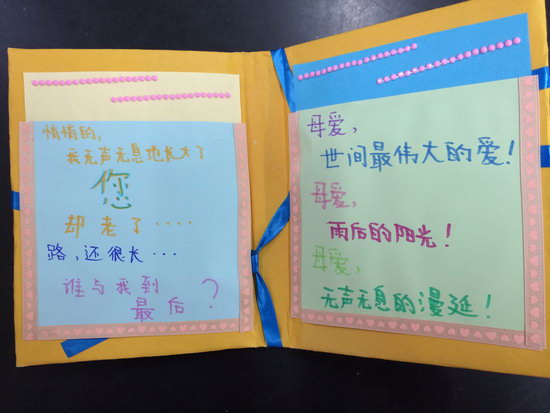 悄悄的,
我无声无息地长大了
您
却老了····
路,还很长···
谁与我到
最后?
母爱,
世间最伟大的爱!
母爱,
雨后的阳光!
母爱,
无声无息的漫延!